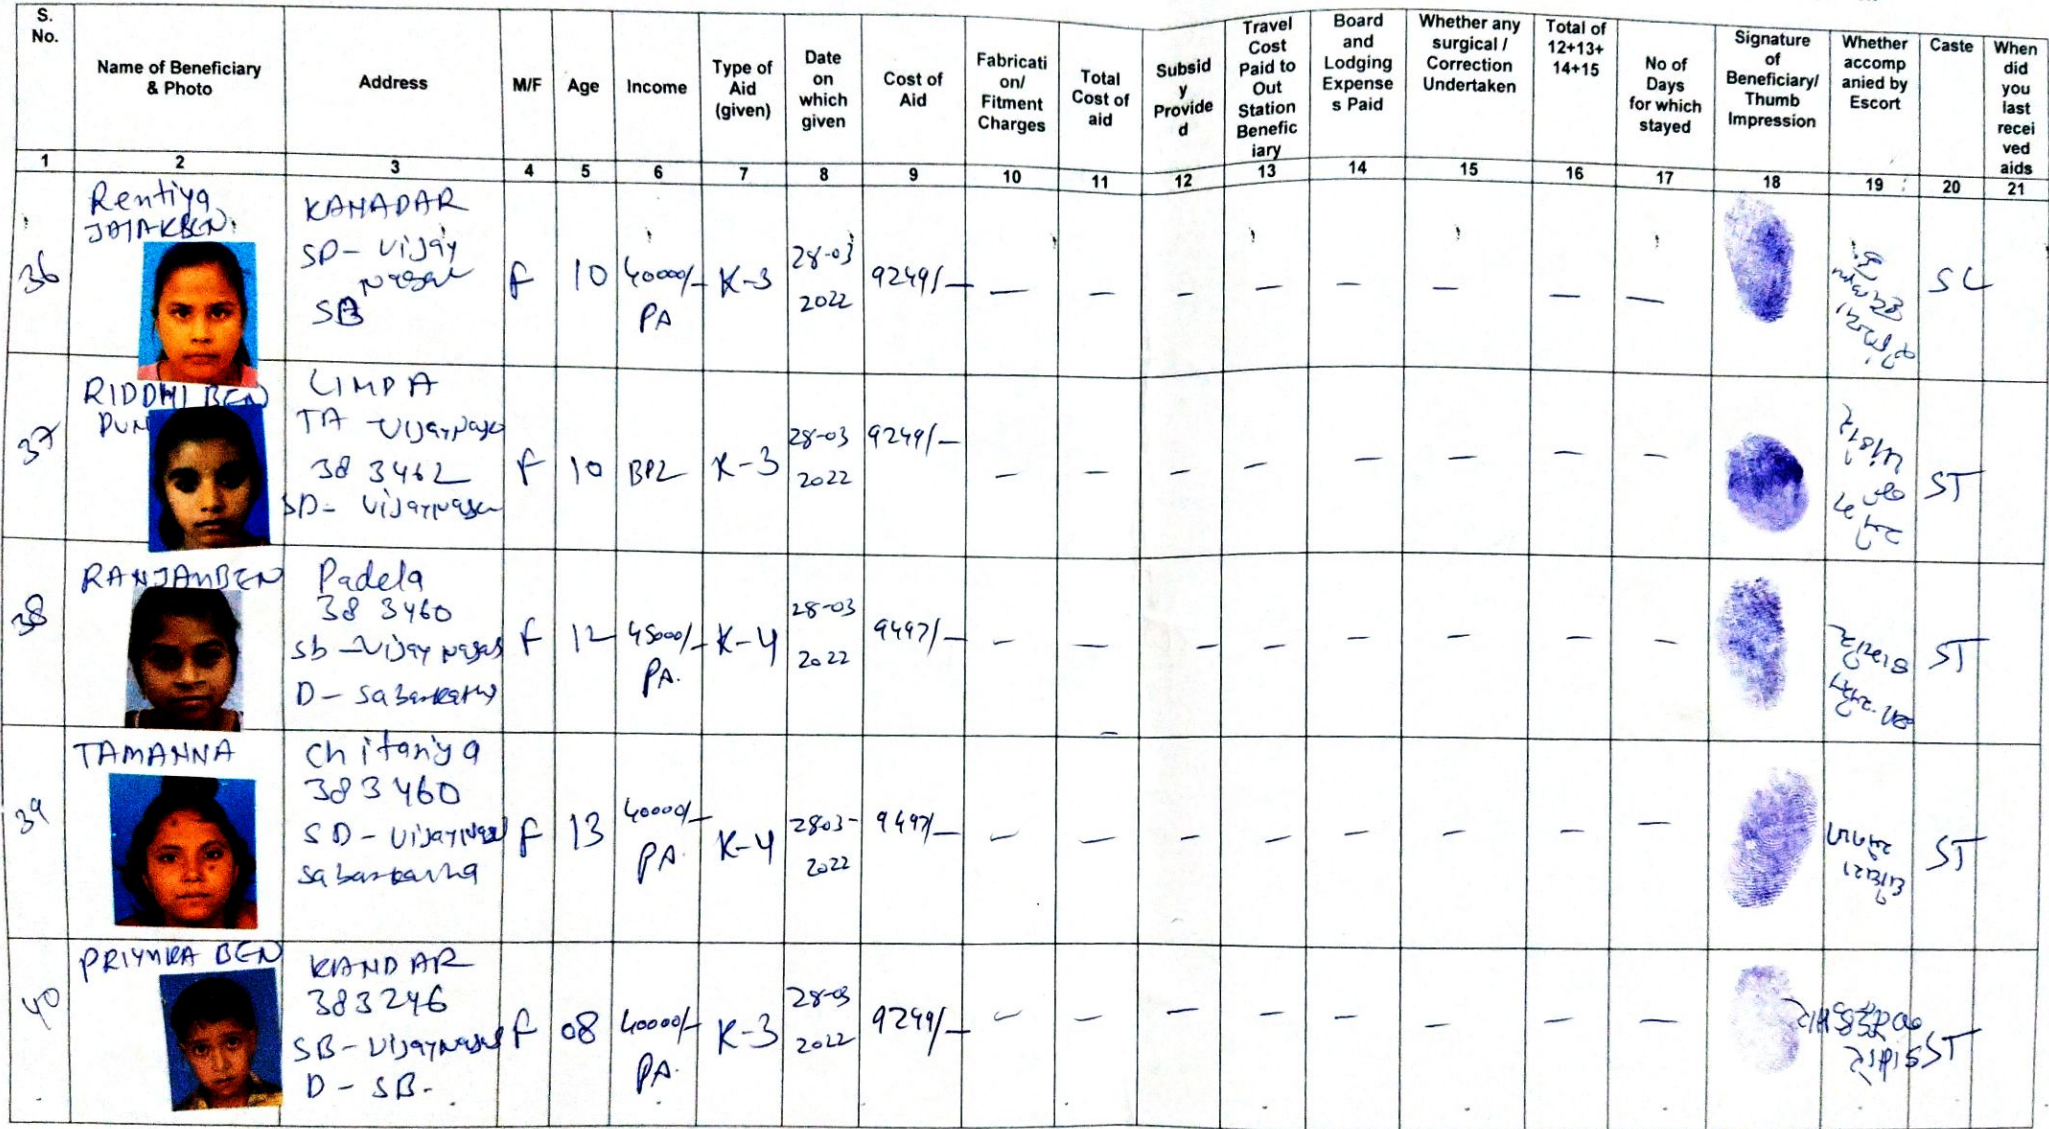 S. No. Name of Beneficiary & Photo Address M/F Age Income Type of Aid (given) Date on which given Cost of Aid Fabricati on/ Fitment Charges Total Cost of aid Subsid y Provide d Travel Cost Paid to Out Station Benefic iary Board and Lodging Expense s Paid Whether any surgical / Correction Undertaken Total of 12+13+ 14+15 No of Days for which stayed Signature of Beneficiary/ Thumb Impression Whether accomp anied by Escort Caste When did you last recei ved aids
1 2 3 4 5 6 7 8 9 10 11 12 13 14 15 16 17 18 19 20 21
Rentiya KANADAR
SD - Vijay
36 F 10 40000/- PA K-3 28-03 2022 9249/- — — — — — — — — SC
SB
RIDDHI BEN LIMDA
TA - Vijaynagar
37 383462 F 10 BPL K-3 28-03 2022 9249/- — — — — — — — — ST
SD - Vijaynagar
RANJANBEN Padela
383460
38 Sb - Vijaynagar F 12 45000/- PA. K-4 28-03 2022 9497/- — — — — — — — — ST
D - Sabarkatha
TAMANNA Chitariya
383460
39 SD - Vijaynagar F 13 40000/- PA. K-4 28-03- 2022 9497/- — — — — — — — — ST
Sabarkantha
PRIYNKA BEN KANDAR
383246
40 SB - Vijaynagar F 08 40000/- PA. K-3 28-03 2022 9249/- — — — — — — — — ST
D - SB.